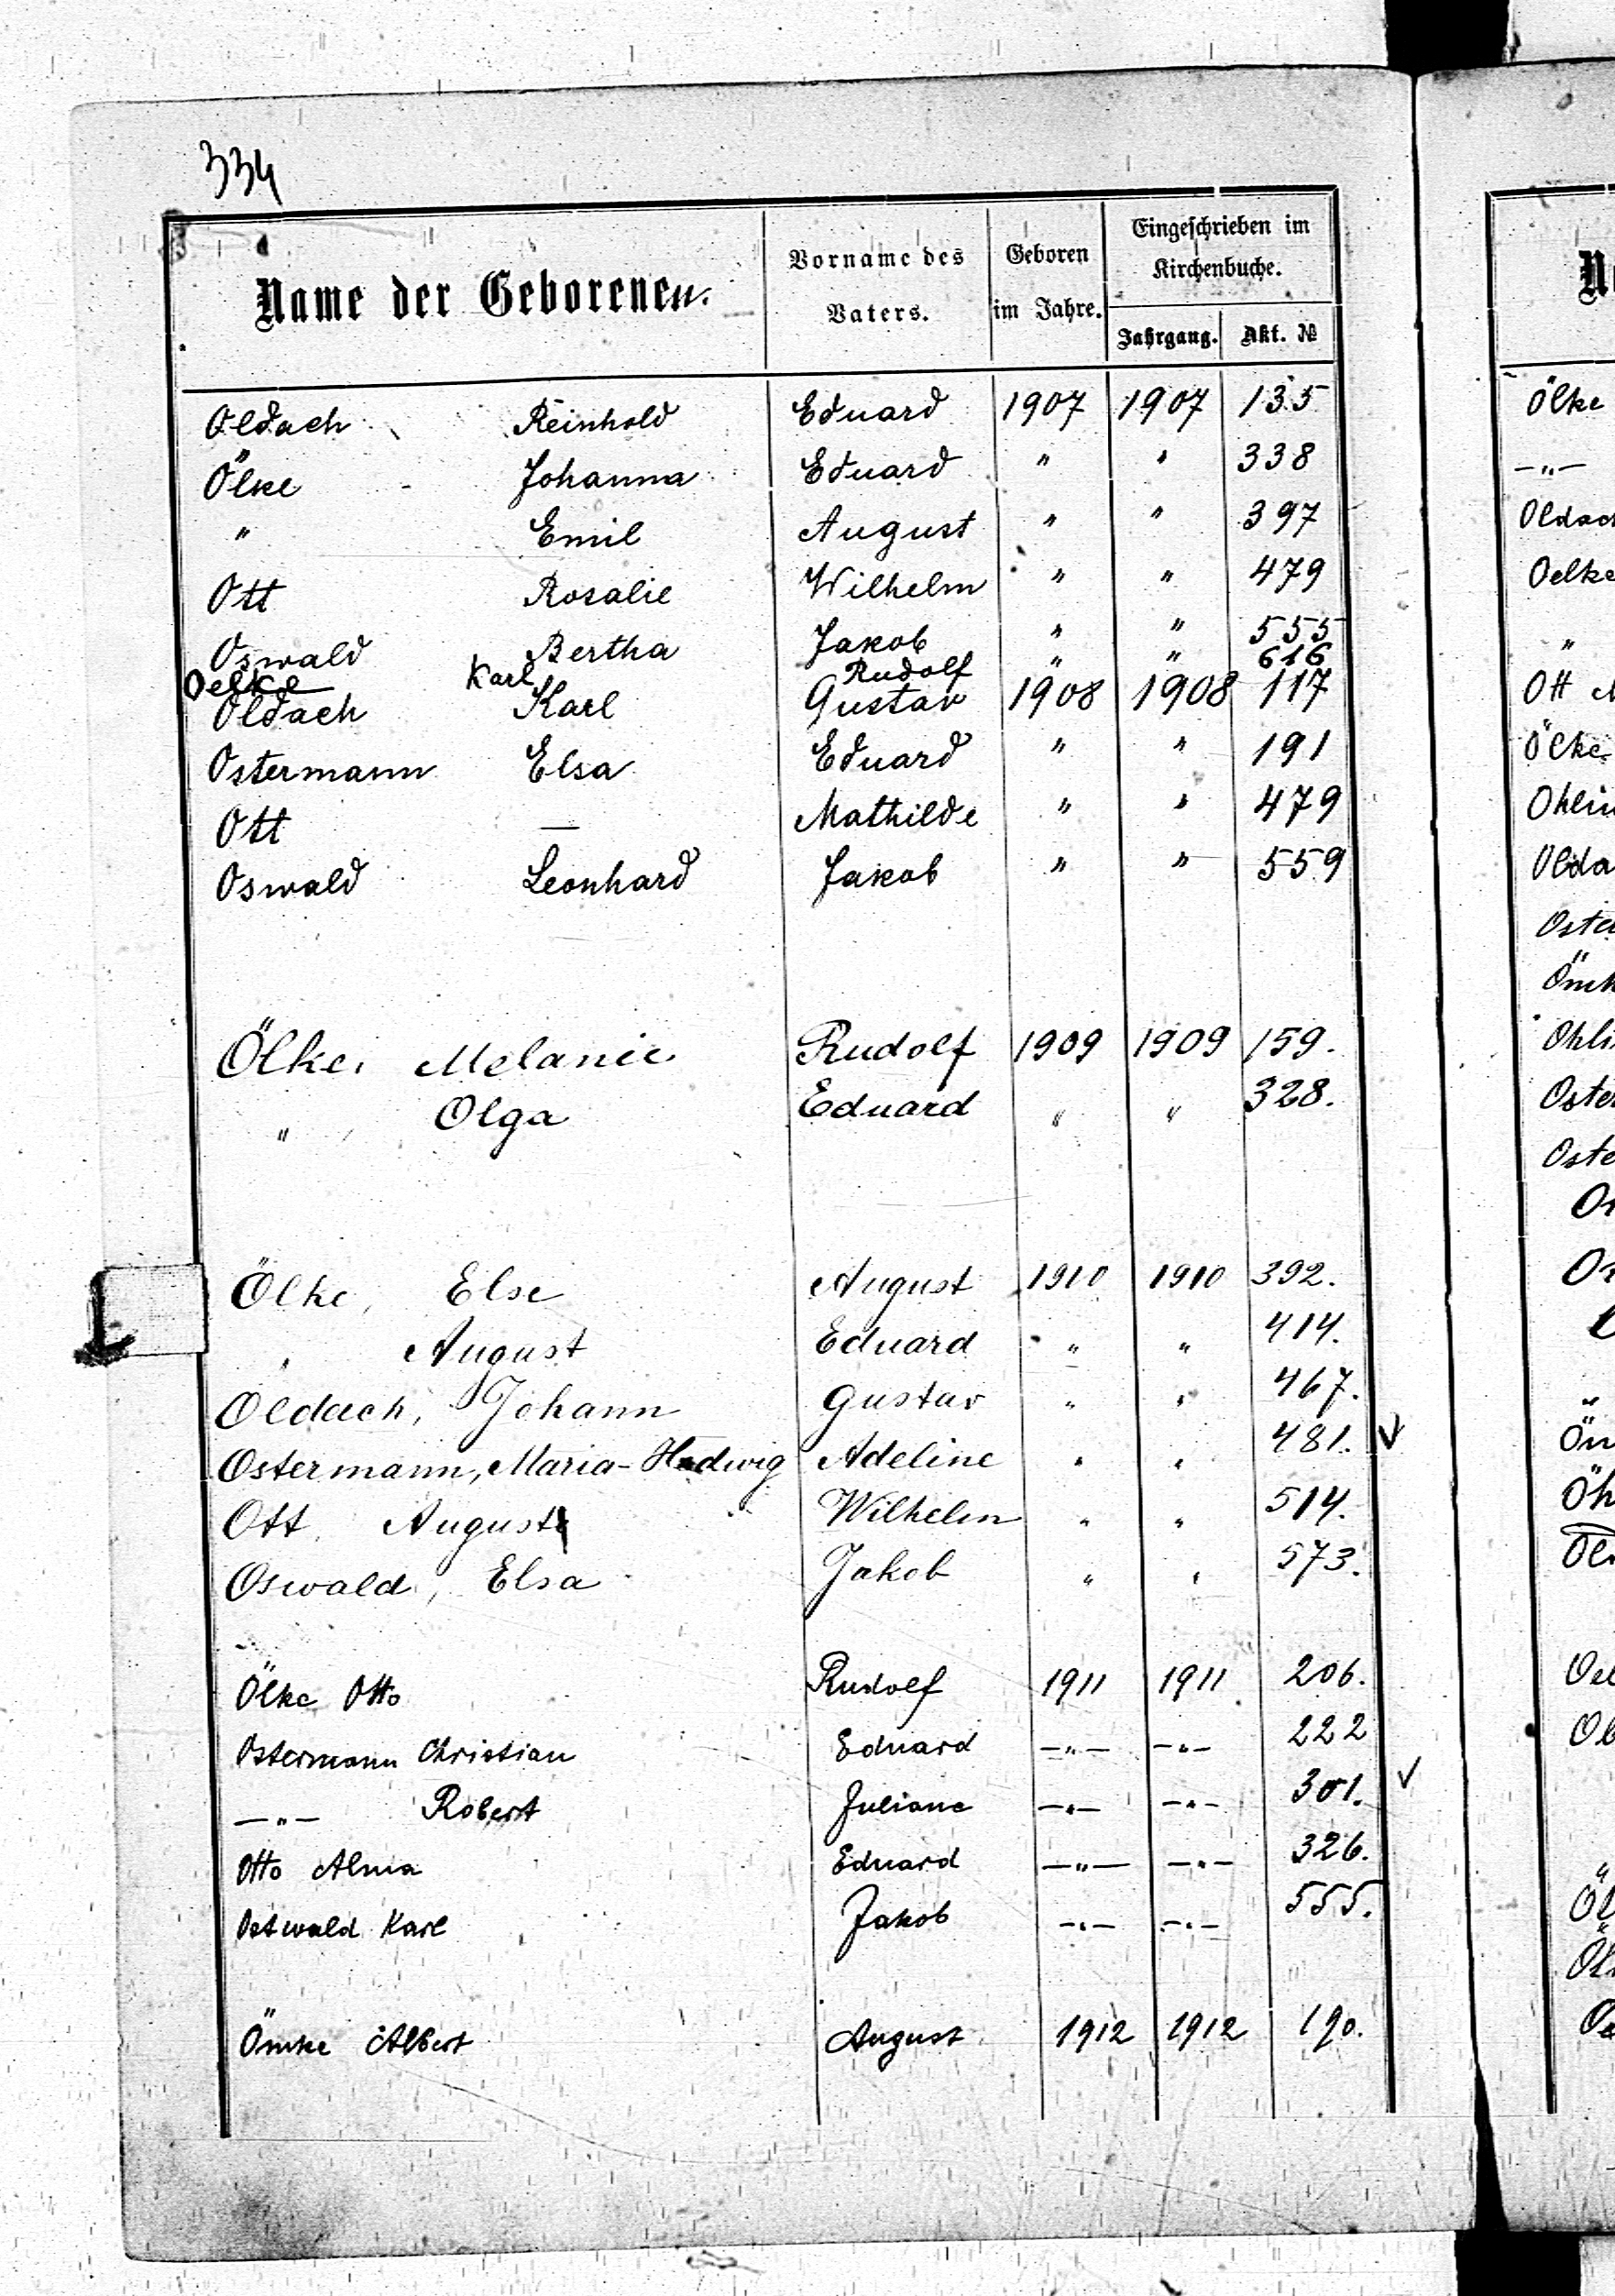 334
Name der Geborenen. Vorname des Vaters. Geboren im Jahre. Eingeschrieben im Kirchenbuche. Jahrgang. Akt. №
Oldach Reinhold Eduard 1907 1907 135
Ölke Johanna Eduard " " 338
" Emil August " " 397
Ott Rosalie Wilhelm " " 479
Oswald Bertha Jakob " " 555
Oelke Karl Rudolf " " 616
Oldach Karl Gustav 1908 1908 117
Ostermann Elsa Eduard " " 191
Ott — Mathilde " " 479
Oswald Leonhard Jakob " " 559
Ölke, Melanie Rudolf 1909 1909 159.
" Olga Eduard " " 328.
Ölke, Else August 1910 1910 392.
" August Eduard " " 414.
Oldach, Johann Gustav " " 467.
Ostermann, Maria-Hedwig Adeline " " 481. ✓
Ott, August Wilhelm " " 514.
Oswald, Elsa Jakob " " 573.
Ölke Otto Rudolf 1911 1911 206.
Ostermann Christian Eduard —"— —"— 222
—"— Robert Juliane —"— —"— 301. ✓
Otto Alma Eduard —"— —"— 326.
Ostwald Karl Jakob —"— —"— 555.
Ömke Albert August 1912 1912 190.
Ölke
—"—
Oldach
Oelke
"
Ott
Ölke